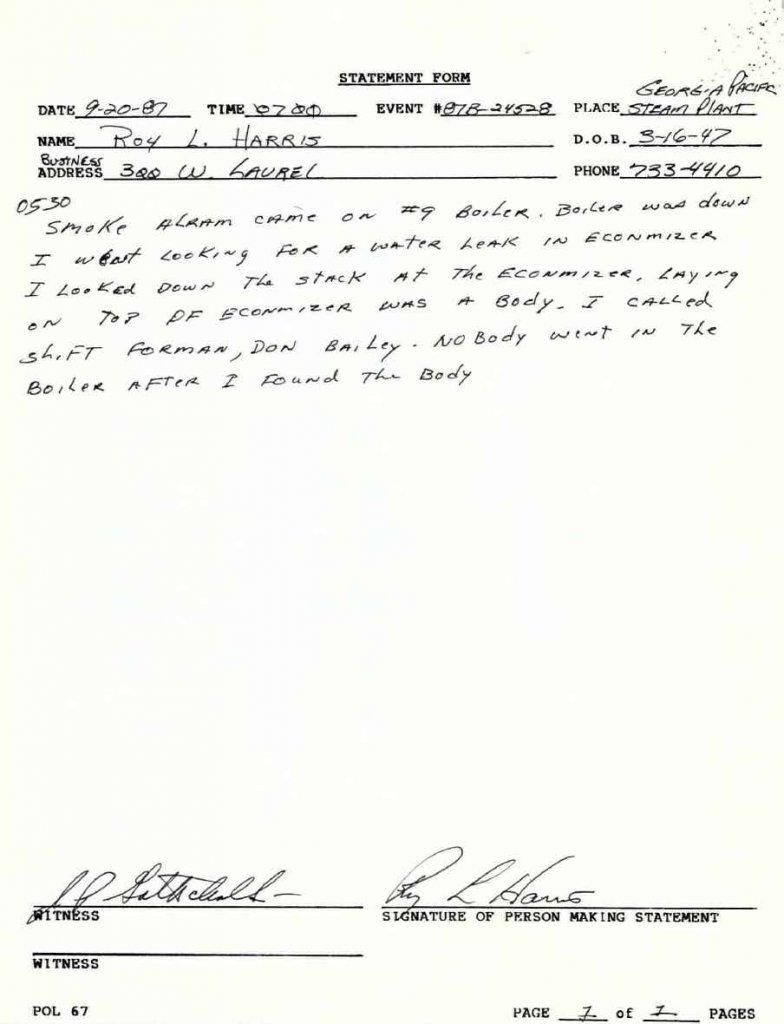 STATEMENT FORM
GEORGIA PACIFIC
DATE 9-20-87 TIME 0700 EVENT #87B-24528 PLACE STEAM PLANT
NAME ROY L. HARRIS D.O.B. 3-16-47
BUSINESS
ADDRESS 300 W. LAUREL PHONE 733-4410
0530
SMOKE ALRAM CAME ON #9 BOILER. BOILER WAS DOWN
I WENT LOOKING FOR A WATER LEAK IN ECONMIZER
I LOOKED DOWN THE STACK AT THE ECONMIZER, LAYING
ON TOP OF ECONMIZER WAS A BODY. I CALLED
SHIFT FORMAN, DON BAILEY. NOBODY WENT IN THE
BOILER AFTER I FOUND THE BODY
Roy L Harris
WITNESS SIGNATURE OF PERSON MAKING STATEMENT
WITNESS
POL 67 PAGE 1 of 1 PAGES